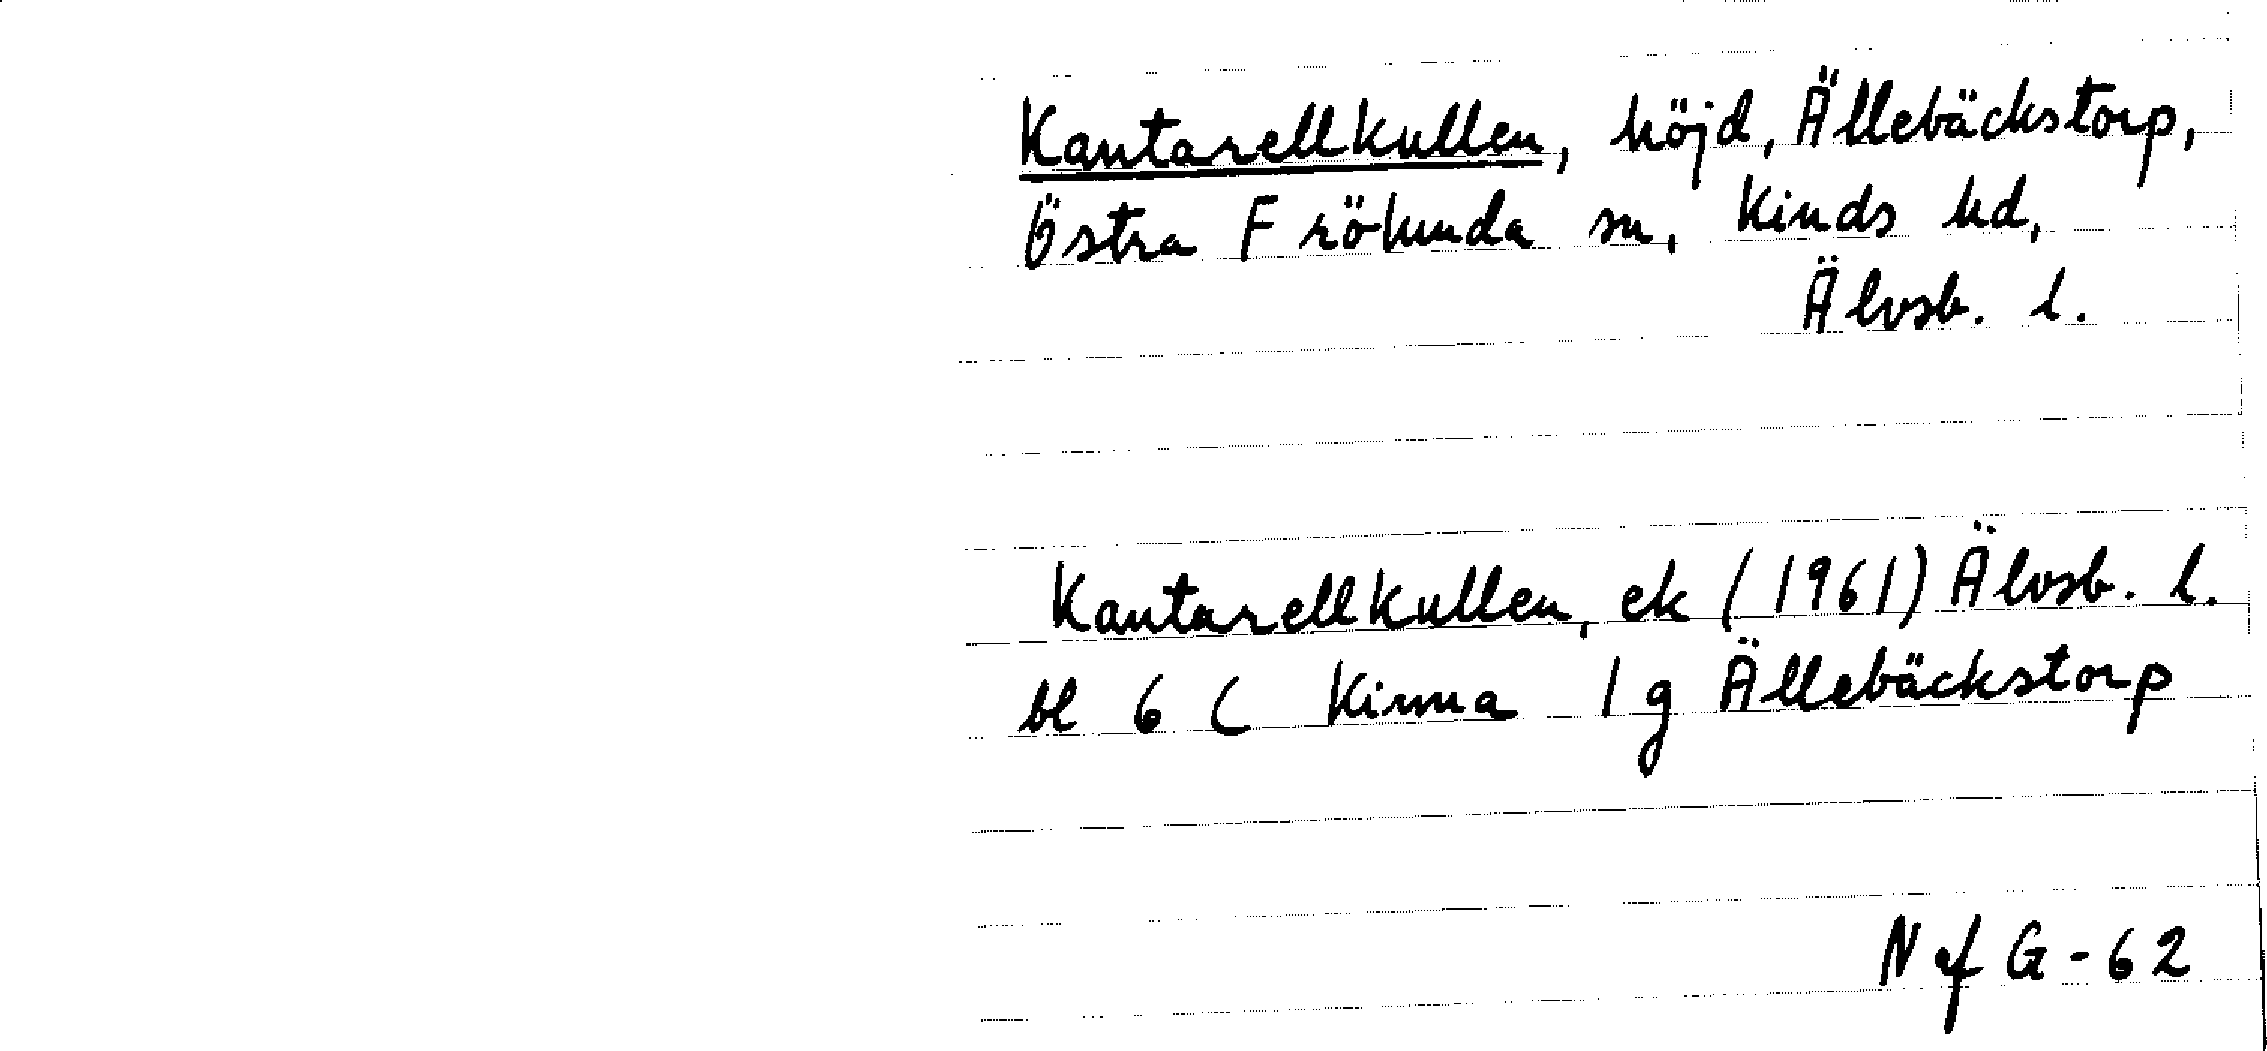 Kantarellkullen, höjd, Ällebäckstorp,
Östra Frölunda sn, Kinds hd,
Älvsb. l.
Kantarellkullen, ek (1961) Älvsb. l.
bl 6 C Kinna 1 g Ällebäckstorp
N ef G-62